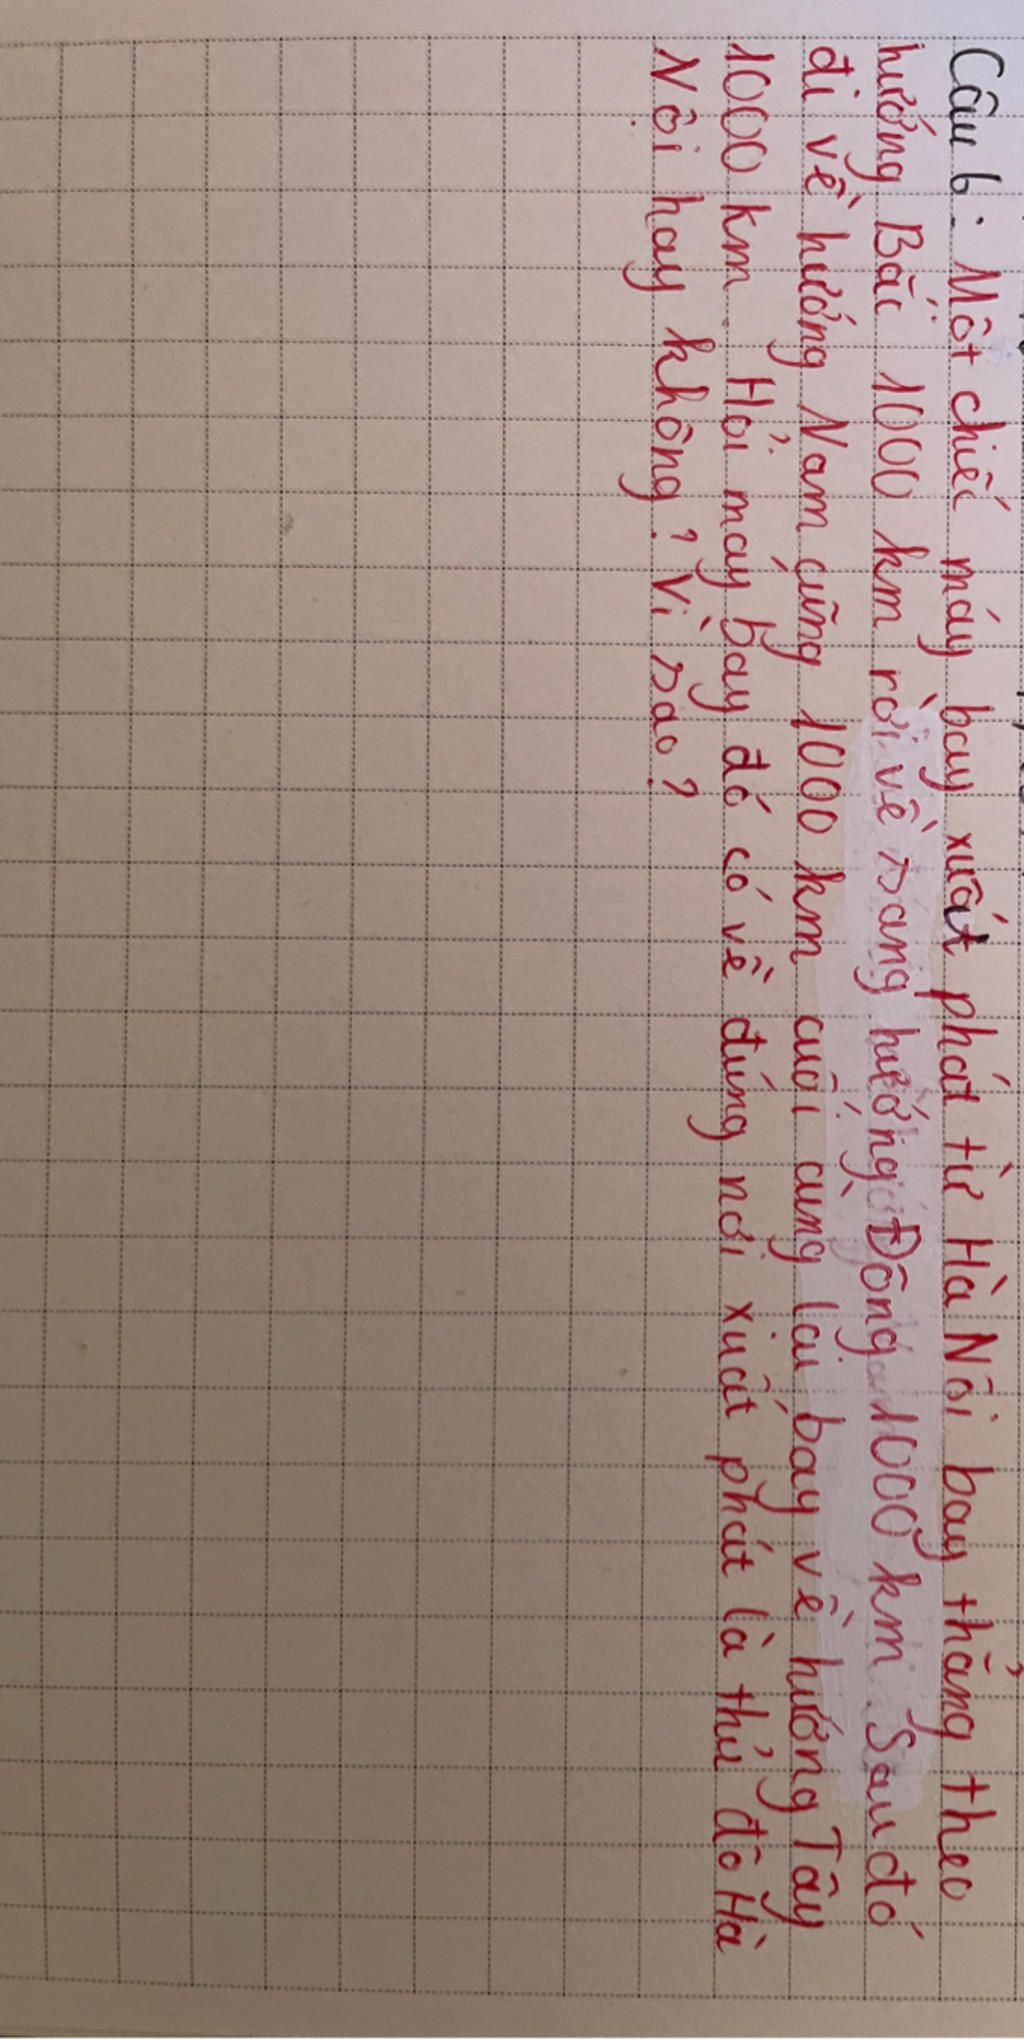 Câu 6: Một chiếc máy bay xuất phát từ Hà Nội bay thẳng theo
hướng Bắc 1000 km rồi về sang hướng Đông 1000 km. Sau đó
đi về hướng Nam cũng 1000 km cuối cùng lại bay về hướng Tây
1000 km. Hỏi máy bay đó có về đúng nơi xuất phát là thủ đô Hà
Nội hay không? Vì sao?